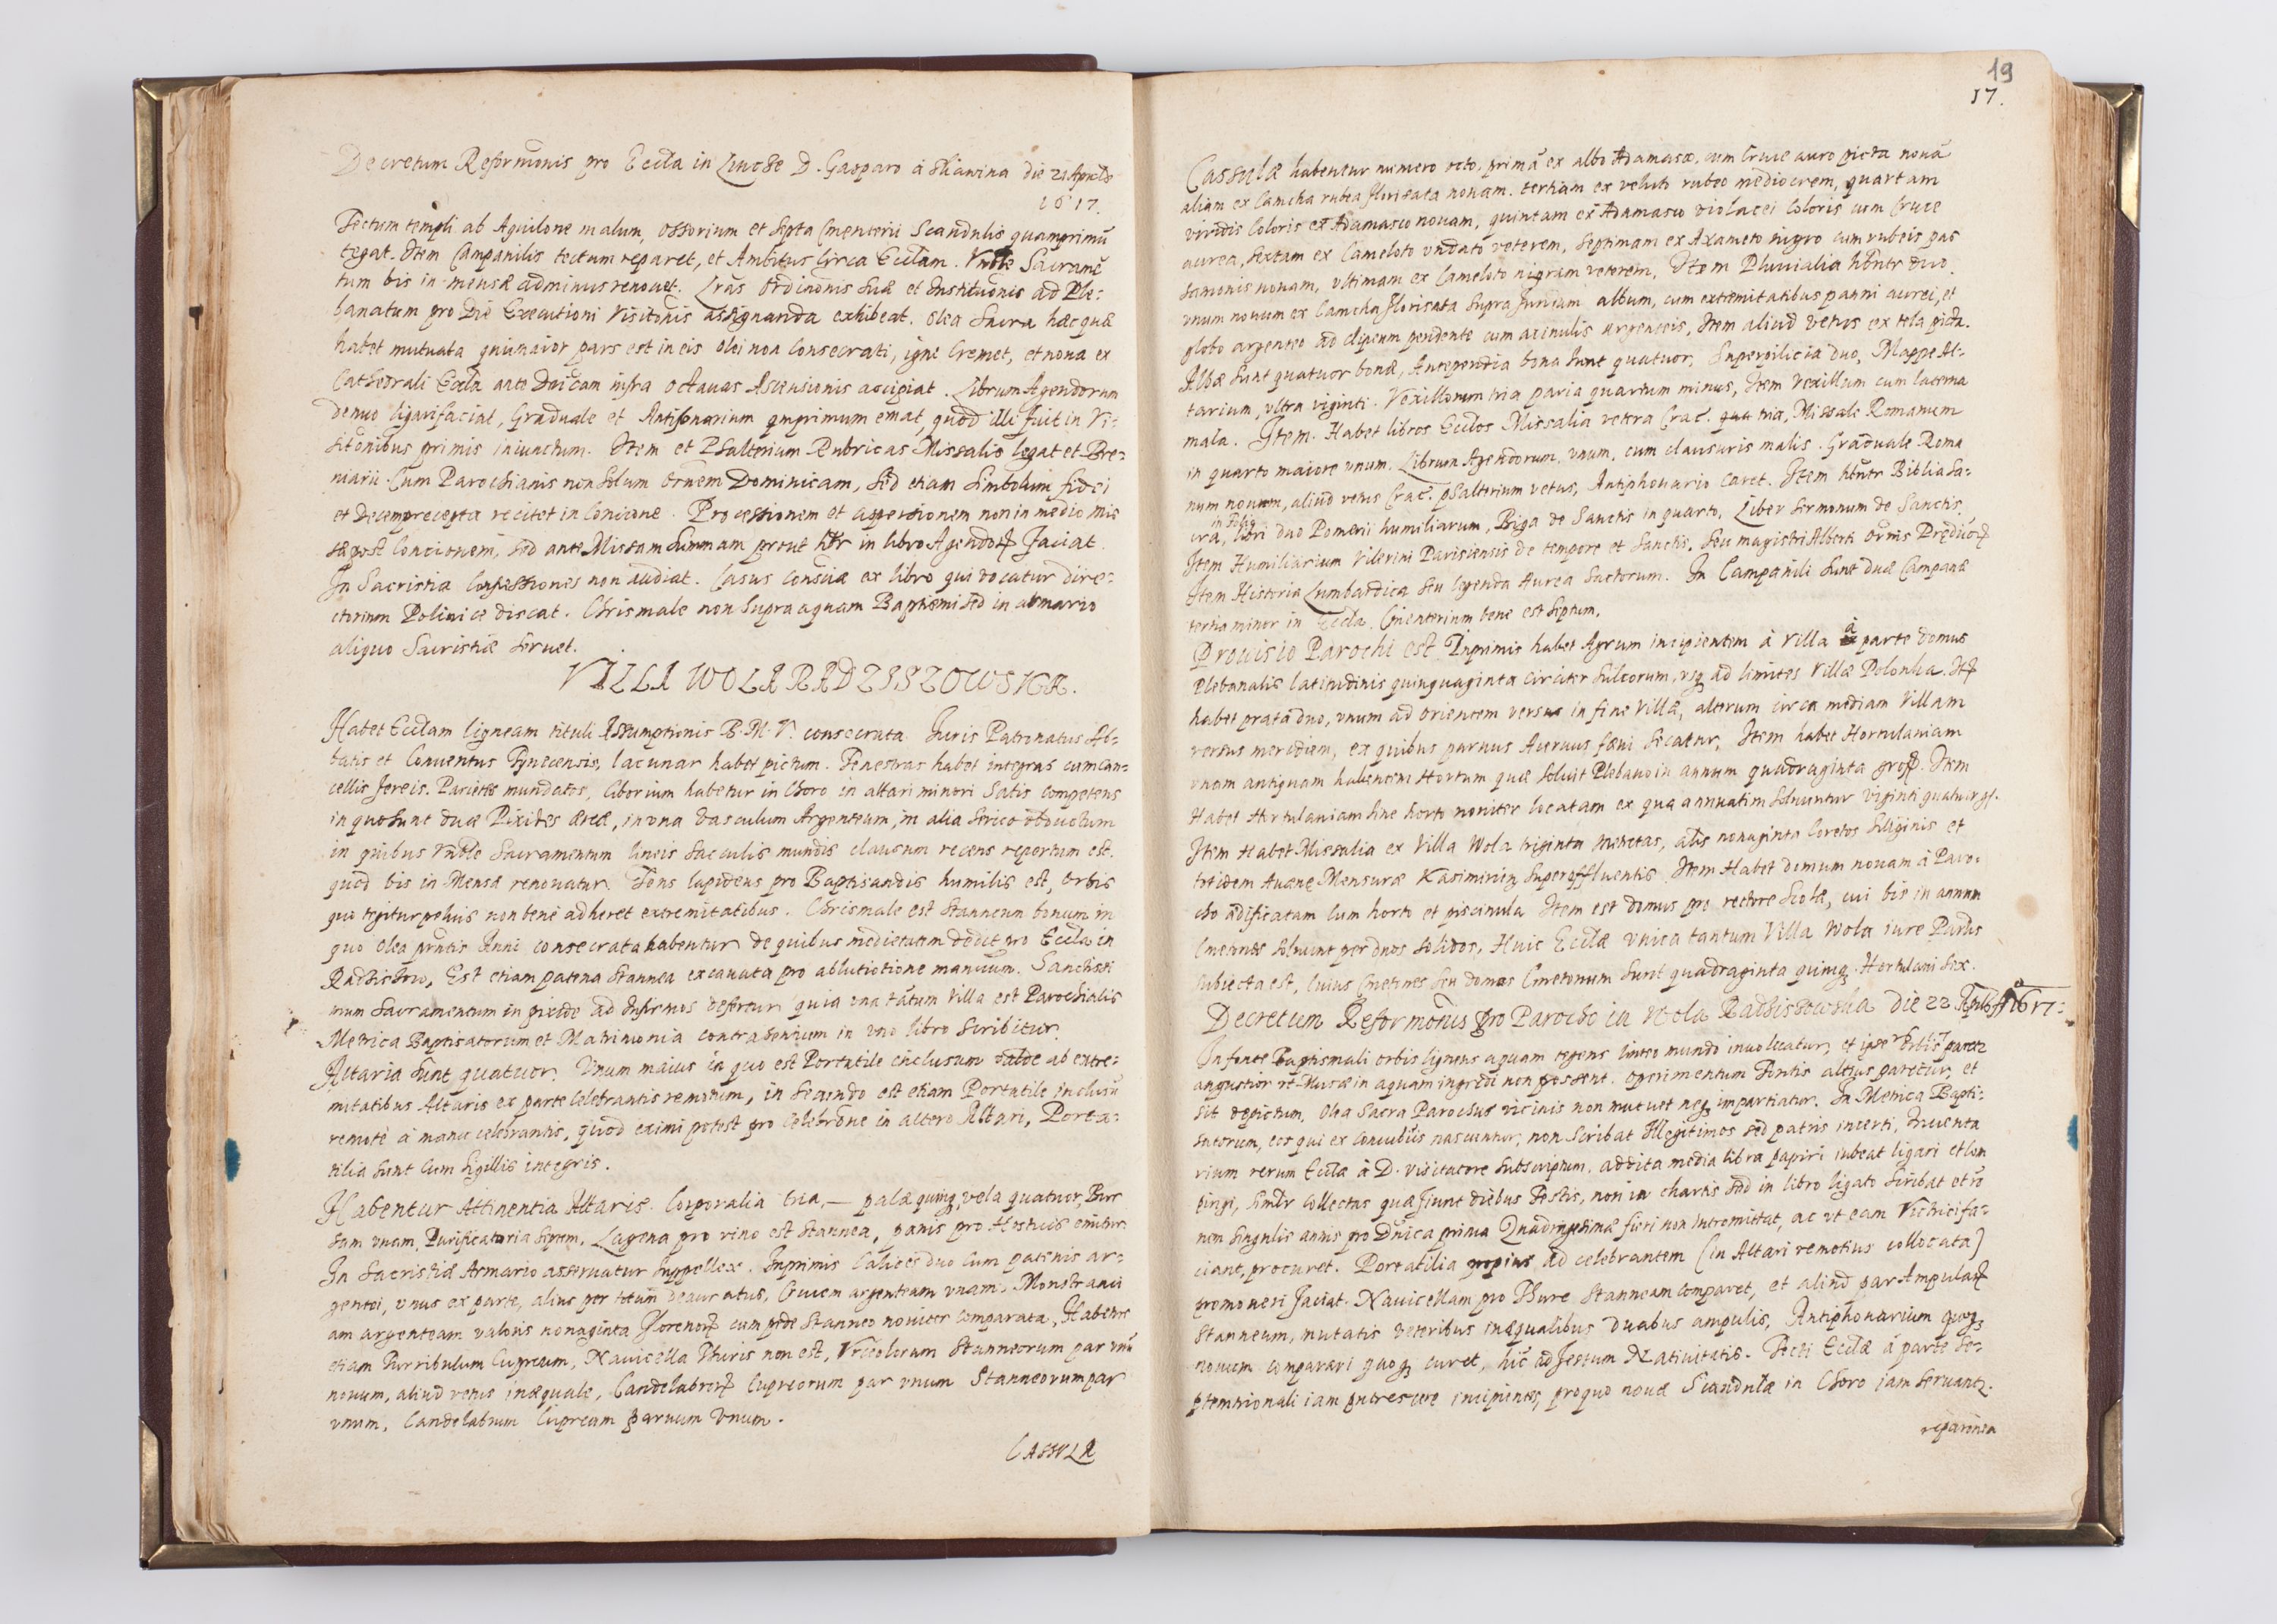 Decretum Reformonis pro Eccla in D. Gasparo à die 21 Aprilis
1617.
Tectum templi ab Aquilone malum, ossorium et septa Cmenterii Scandulis quamprimū
tegat. Item Campanilis tectum reparet, et Ambitus Circa Ecclam. Sacramē
tum bis in mense adminus renouet. Lrās Ordinonis suæ et Institutionis ad Ple-
banatum pro Die Executioni Visitonis assignanda exhibeat. Olea Sacra hæc quæ
habet mutuata maior pars est in eis olei non Consecrati, igne Cremet, et noua ex
Cathedrali Eccla ante Dnicam infra octauas Ascensionis accipiat. Librum Agendorum
denuo ligari faciat, Graduale et Antifonarium qmprimum emat, quod illi fuit in Vi-
sitonibus primis iniunctum. Item et Psalterium Rubricas Missalis legat et Bre-
uiarii. Cum Parochianis non solum Oronem Dominicam, sed etiam Simbolum fidei
et Decem precepta recitet in Concione. Processionem et aspersionem non in medio Mis
sæ post Concionem, sed ante Missam Summam prout hr in libro Agendoꝝ faciat.
In Sacristia Confessiones non audiat. Casus Consciæ ex libro qui vocatur Dire-
ctorium Polinice discat. Chrismale non supra aquam Baptismi sed in armario
aliquo Sacristiæ seruet.
VILLA WOLA RADZISZOWSKA.
Habet Ecclam ligneam tituli Assumptionis B. M. V. consecrata Iuris Patronatus Ab-
batis et Conuentus Tynecensis, lacunar habet pictum. Fenestras habet integras cum can-
cellis fereis. Parietes mundatos, Ciborium habetur in Choro in altari minori satis competens
in quo sunt duæ Pixides æreæ, in vna vasculum Argenteum, in alia serico obuolutum
in quibus Vnble Sacramentum lineis sacculis mundis clausum recens repertum est.
quod bis in Mense renouatur. Fons lapideus pro Baptisandis humilis est, Orbis
quo tegitur peluis non bene adheret extremitatibus. Chrismale est stanneum bonum in
quo Olea pntis Anni consecrata habentur de quibus medietatem dedit pro Eccla in
Radzisow, Est etiam patena stannea excauata pro ablutiotione manuum. Sanctissi
mum Sacramentum in pixide ad Infirmos defertur quia vna tātum Villa est Parochialis
Metrica Baptisatorum et Matrimonia contrahentium in vno libro scribitur.
Altaria sunt quatuor. Vnum maius in quo est Portatile inclusum valde ab extre-
mitatibus Altaris ex parte Celebrantis remotum, in secundo est etiam Portatile inclusū
remote à manu celebrantis, quod eximi potest pro Celebrone in altero Altari, Porta-
tilia sunt cum sigillis integris.
Habentur Attinentia Altaris. Corporalia tria, — palæ quinqꝫ, vela quatuor, Bur
sam vnam, Purificatoria septem. Lagena pro vino est stannea, panis pro Hostiis emitur.
In Sacristiæ Armario asseruatur suppellex. Inprimis Calices duo cum patenis ar-
gentei, vnus ex parte, alius per totum deauratus, Crucem argenteam vnam. Monstranci
am argenteam valoris nonaginta florenoꝝ cum pede stanneo nouiter comparata, Habetur
etiam Turribulum Cupreum, Nauicella Thuris non est, Vrceolorum stanneorum par vnū
nouum, aliud vetus inæquale, Candelabroꝝ Cupreorum par vnum Stanneorum par
vnum, Candelabrum Cupreum paruum vnum.
CASSVLÆ
19
17.
Cassulæ habentur numero octo, primā ex albo Adamasco, cum Cruce auro picta nouā
aliam ex Camcha rubea florisata nouam. tertiam ex veluto rubeo mediocrem, quartam
viridis Coloris ex Adamasco nouam, quintam ex Adamasco violacei Coloris cum Cruce
aurea, sextam ex Cameloto vndato veterem, septimam ex Axameto nigro cum rubeis pas
samonis nouam, vltimam ex Cameloto nigram veterem, Item Pluuialia hbntr duo.
vnum nouum ex Camcha florisata supra album, cum extremitatibus panni aurei, et
globo argenteo ad clipeum pendente cum acinulis argenteis, Item aliud vetus ex tela picta.
Albæ sunt quatuor bonæ, Antependia bona sunt quatuor, Superpilicia duo, Mappæ Al-
tarium, vltra viginti. Vexillorum tria paria quartum minus, Item Vexillum cum laterna
mala. Item. Habet libros Ecclos Missalia vetera Crac. tria, Missale Romanum
in quarto maiore vnum. Librum Agendorum. vnum, cum clausuris malis. Graduale Roma
num nouum, aliud vetus Crac. psalterium vetus, Antiphonario Caret. Item hbntr Biblia Sa-
cra, in folio libri duo Pomerii humiliarum, Biga de Sanctis in quarto, Liber sermonum de Sanctis.
Item Humiliarium Vilerini Parisiensis de tempore et Sanctis, seu magistri Alberti Ornis Predicoꝝ
Item Historia Lumbardica seu legenda Aurea Sactorum. In Campanili sunt duæ Campanæ
tertia minor in Eccla. Cmenterium bene est septum.
Prouisio Parochi est. Inprimis habet Agrum incipientem à Villa à parte domus
Plebanalis latitudinis quinquaginta circiter sulcorum, vsqꝫ ad limites Villæ Polonka. Itē
habet prata duo, vnum ad Orientem versus in fine Villæ, alterum circa mediam Villam
versus meridiem, ex quibus paruus Aceruus fæni secatur, Item habet Hortulaniam
vnam antiquam habentem Hortum quæ soluit Plebano in annum quadraginta gross. Item
Habet Hortulaniam sine horto nouiter locatam ex qua annuatim soluuntur viginti quatuor gr.
Item Habet Missalia ex Villa Wola triginta metretas, als nonaginta Coretos siliginis et
totidem Auenę Mensuræ Kasimirien superefffluentis. Item Habet domum nouam à Paro-
cho ædificatam cum horto et piscinula Item est domus pro rectore Scolæ, cui bis in annum
Cmetones soluunt per duos solidos, Huic Ecclæ vnica tantum Villa Wola iure Parochi
subiecta est, Cuius Cmetones seu domos Cmetonum sunt quadraginta quinqꝫ. Hortulani sex.
Decretum Reformonis pro Parocho in Wola Radzissowska die 22 Aprilis 1617.
In fonte Baptismali orbis ligneus aquam tegens linteo mundo inuoluatur, et ipse orbis paretr
angustior vt Muscæ in aquam ingredi non possent. Operimentum Fontis altius paretur, et
sit depictum, Olea Sacra Parochus vicinis non mutuet neqꝫ impartiatur. In Metrica Bapti-
satorum, eos qui ex Concubiis nascuntur, non scribat Illegitimos sed patris incerti, Inuenta
rium rerum Ecclæ à D. Visitatore subscriptum, addita media libra papiri iubeat ligari et con
pingi, similr Collectas quæ fiunt diebus Festis, non in chartis sed in libro ligato scribat et rō
nem singulis annis pro Dnica prima Quadragesimæ fieri non intromittat, ac vt eam Vichrici fa-
ciant, procuret. Portatilia propius ad celebrantem (in Altari remotius collocata)
promoueri faciat. Nauicellam pro Thure stanneam comparet, et aliud par Ampulaꝝ
stanneum, mutatis veteribus inæqualibus duabus ampulis, Antiphonarium quoqꝫ
nouum comparari quoqꝫ curet, hic ad festum Natiuitatis. Tecti Ecclæ à parte se-
ptemtrionali iam putrescere incipientes, pro quo nouæ Scandulæ in Choro iam seruantr.